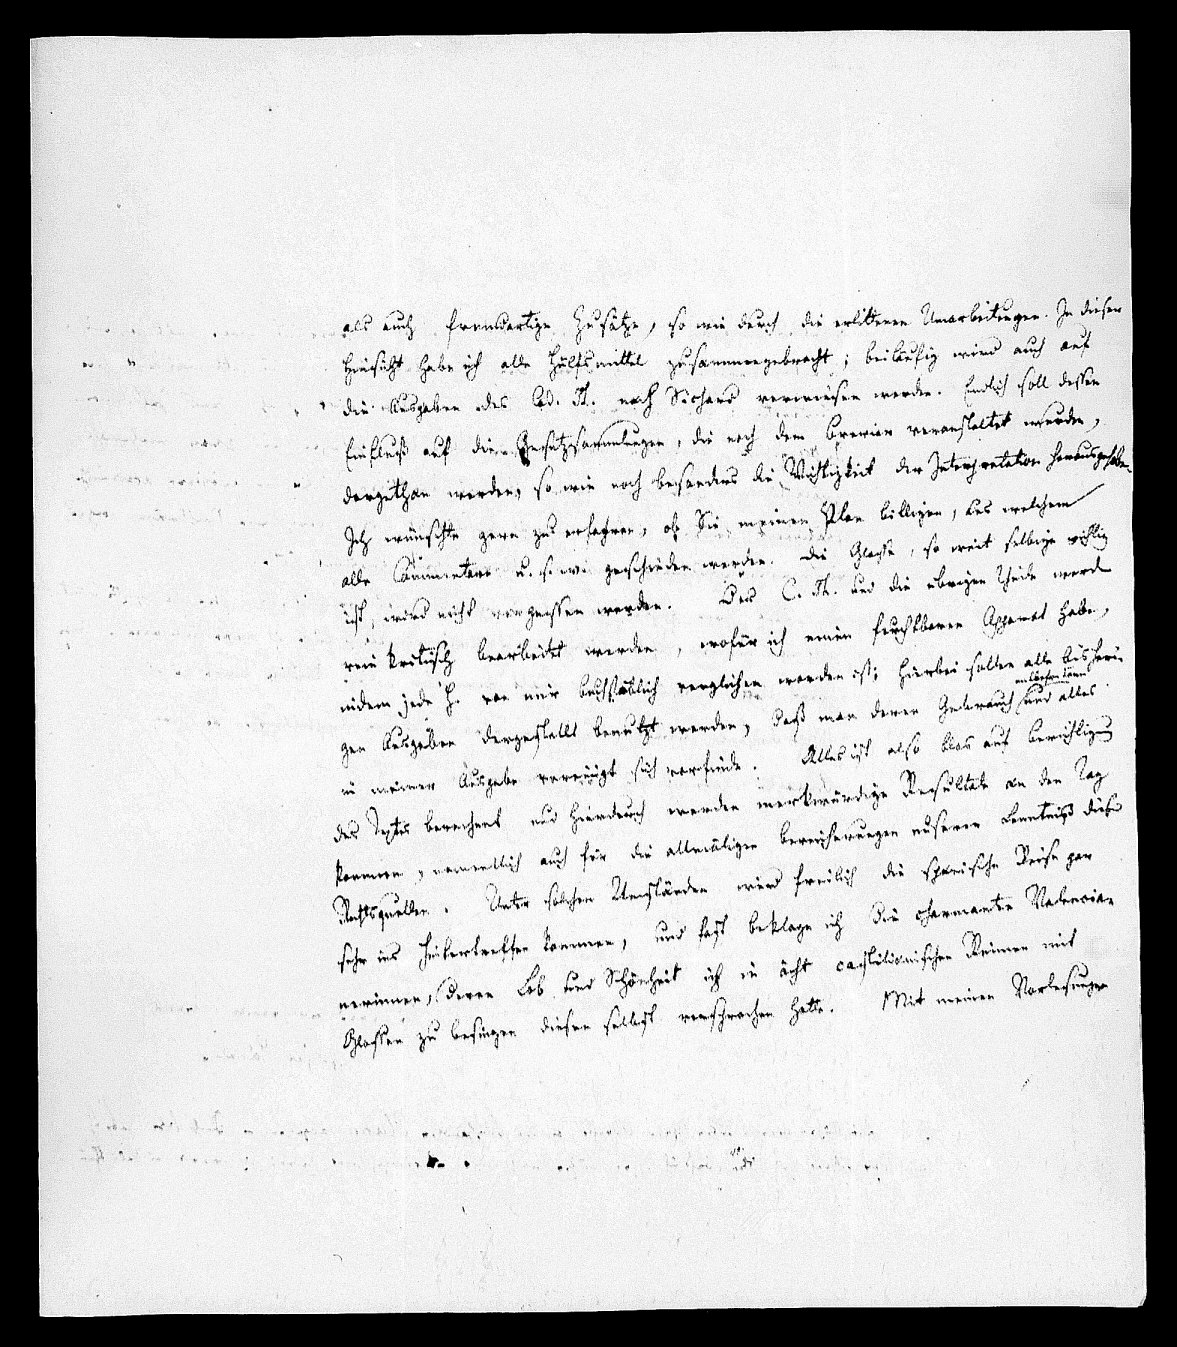 als auch fremdartige Zusätze, so wie durch die erlittenen Umarbeitungen. In dieser
Hinsicht habe ich alle Hülfsmittel zusammengebracht; beiläufig wird auch auf
die Ausgaben des Cod. Th. nach Sichard verwiesen werden. Endlich soll dessen
Einfluß auf die Gesetzsammlungen, die nach dem Breviar veranstaltet wurden,
dargethan werden, so wie noch besonders die Wichtigkeit der Interpretation herausgehoben.
Ich wünschte gern zu erfahren, ob Sie meinen Plan billigen, aus welchem
alle Commentare u. s. w. geschieden werden. Die Glosse, so weit selbige wichtig
ist, wird nicht vergessen werden. Der C. Th. und die übrigen Theile werd
rein kritisch bearbeitet werden, wofür ich einen furchtbaren Apparat habe,
indem jede H. von mir buchstäblich verglichen worden ist; hierbei sollen alle bisheri-
gen Ausgaben dergestallt benutzt werden, daß man deren Gebrauch entbehren kann und alles
in meiner Ausgabe vereinigt sich vorfinde. Alles ist also blos auf Berichtigung
des Textes berechnet und hierdurch werden merkwürdige Resultate an den Tag
kommen, namentlich auch für die allmäligen Bereicherungen unserer Kenntniß dieser
Rechtsquellen. Unter solchen Umständen wird freilich die spanische Reise gar
sehr ins Hintertreffen kommen, und fast beklage ich die charmanten Valencia-
nerinnen, deren Lob und Schönheit ich in ächt castilianischen Reimen mit
Glossen zu besingen diesen selbst versprochen hatte. Mit meinen Vorlesungen